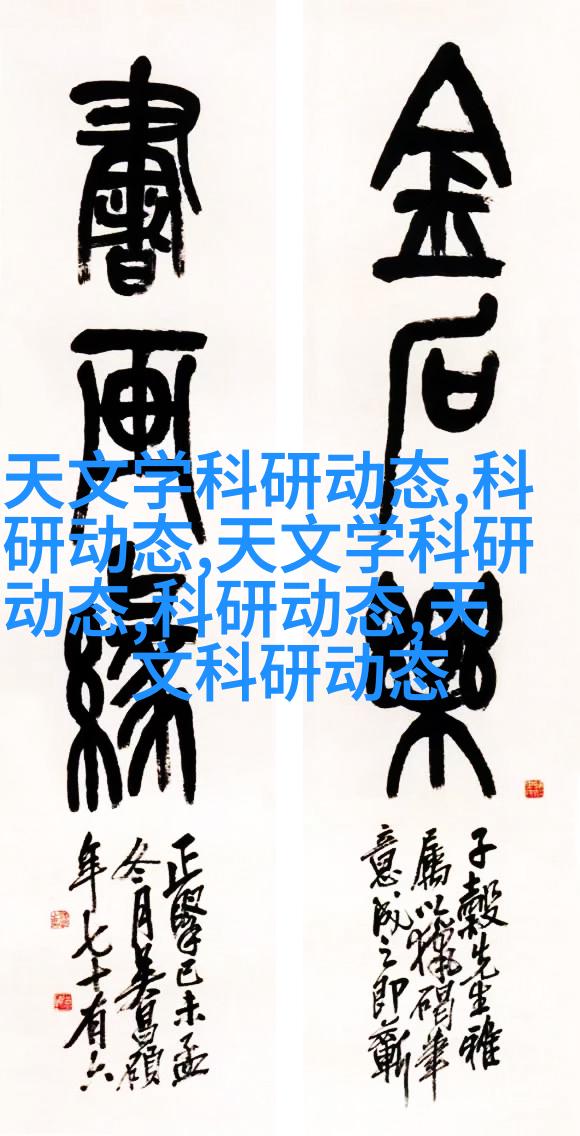 金石樂
書畫緣
子毅先生雅
屬以獵碣筆
意成之即蘄
正擘己未孟
冬月吴昌碩
年七十有六
天文学科研动态,科
研动态,天文学科研
动态,科研动态,天
文科研动态